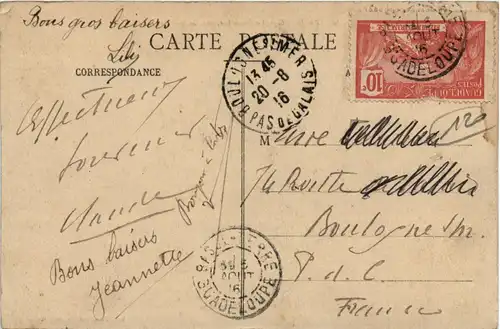 Bons gros baisers
Lili
CARTE POSTALE
CORRESPONDANCE
BOULOGNE-S-MER
13 45
20-8
16
PAS DE CALAIS
GUADELOUPE
10
POSTES
120
Affectueux
souvenir
Claude
Bons baisers
Jeannette
M
Boulogne s/m
P. d. C.
France
BASSE-TERRE
5
AOUT
16
GUADELOUPE